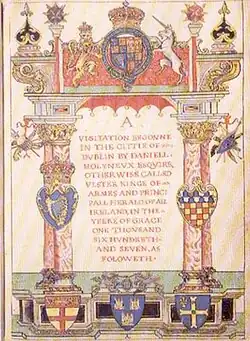 A
VISITATION BEGONNE
IN THE CITTIE OF
DVBLIN BY DANIELL
MOLYNEVX ESQVIRE
OTHERWISE CALLED
VLSTER KINGE OF
ARMES AND PRINCI
PALL HERALD OF ALL
IRELAND, IN THE
YEERE OF GRACE
ONE THOVSAND
SIX HVNDRETH
AND SEVEN, AS
FOLOWETH.